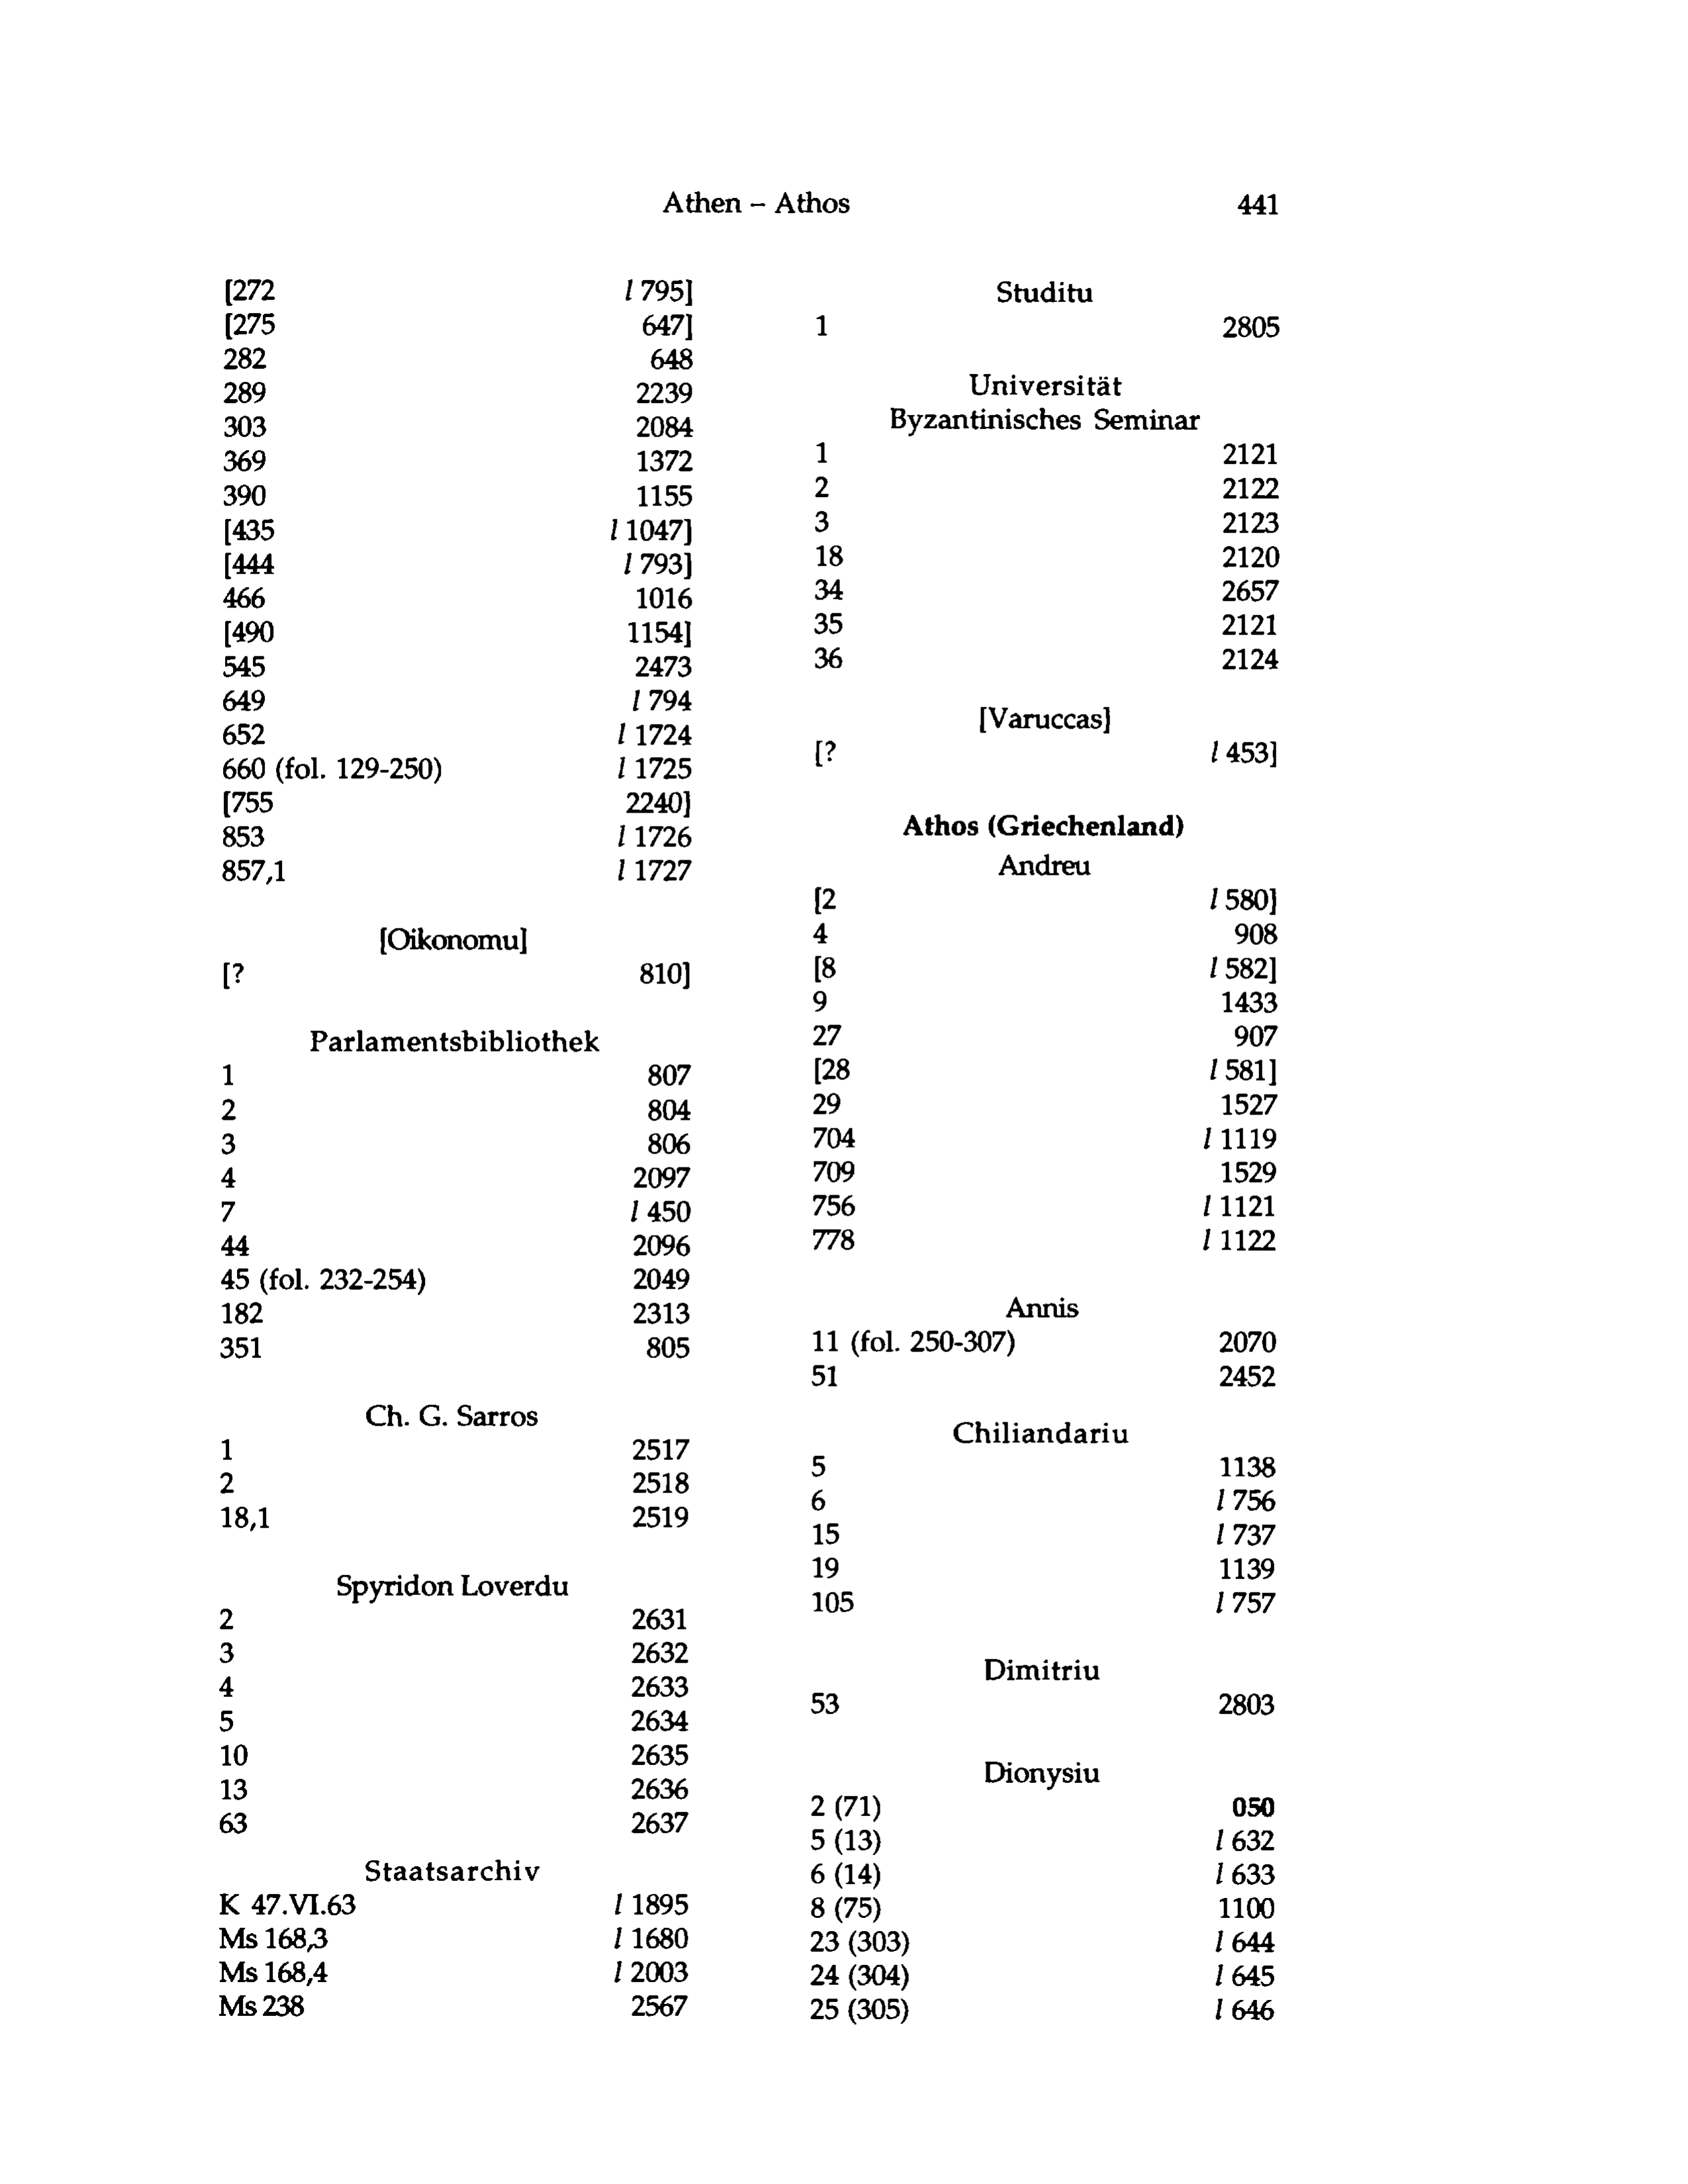 Athen – Athos 441
[272 l 795]
[275 647]
282 648
289 2239
303 2084
369 1372
390 1155
[435 l 1047]
[444 l 793]
466 1016
[490 1154]
545 2473
649 l 794
652 l 1724
660 (fol. 129-250) l 1725
[755 2240]
853 l 1726
857,1 l 1727
[Oikonomu]
[? 810]
Parlamentsbibliothek
1 807
2 804
3 806
4 2097
7 l 450
44 2096
45 (fol. 232-254) 2049
182 2313
351 805
Ch. G. Sarros
1 2517
2 2518
18,1 2519
Spyridon Loverdu
2 2631
3 2632
4 2633
5 2634
10 2635
13 2636
63 2637
Staatsarchiv
K 47.VI.63 l 1895
Ms 168,3 l 1680
Ms 168,4 l 2003
Ms 238 2567
Studitu
1 2805
Universität
Byzantinisches Seminar
1 2121
2 2122
3 2123
18 2120
34 2657
35 2121
36 2124
[Varuccas]
[? l 453]
Athos (Griechenland)
Andreu
[2 l 580]
4 908
[8 l 582]
9 1433
27 907
[28 l 581]
29 1527
704 l 1119
709 1529
756 l 1121
778 l 1122
Annis
11 (fol. 250-307) 2070
51 2452
Chiliandariu
5 1138
6 l 756
15 l 737
19 1139
105 l 757
Dimitriu
53 2803
Dionysiu
2 (71) 050
5 (13) l 632
6 (14) l 633
8 (75) 1100
23 (303) l 644
24 (304) l 645
25 (305) l 646